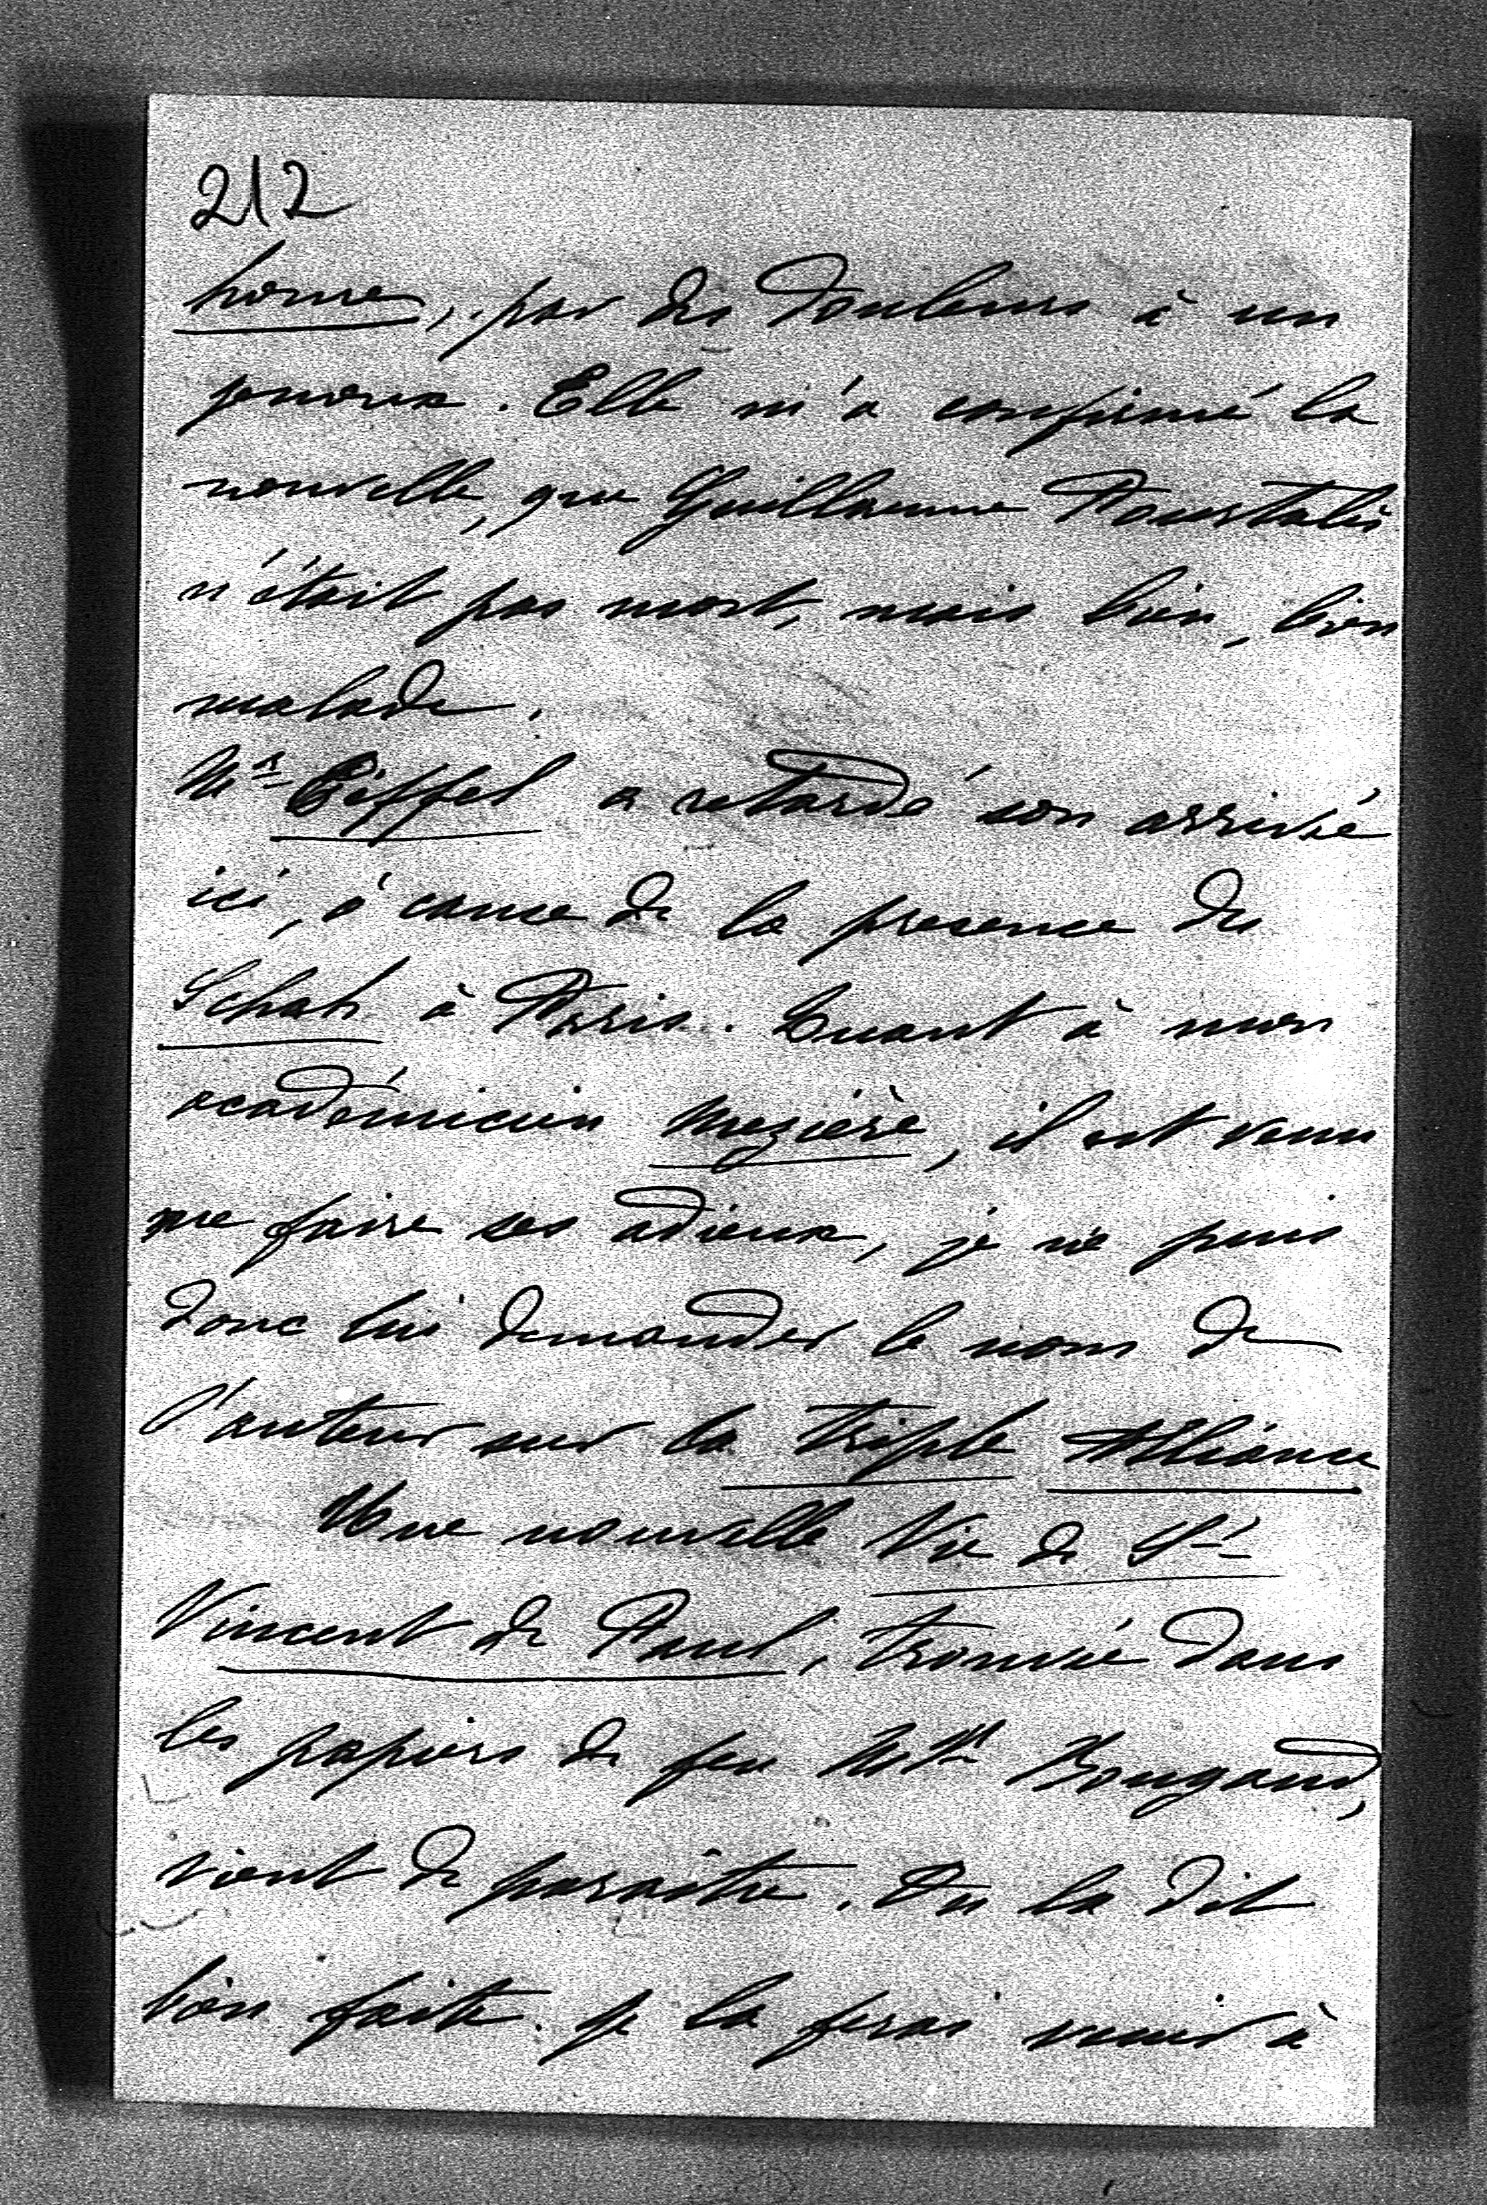 212
home, par des douleurs à un
genoux. Elle m'a confirmé la
nouvelle, que Guillaume Pourtalès
n'était pas mort, mais bien, bien
malade.
Mr Eiffel a retardé son arrivée
ici, à cause de la presence du
Schah à Paris. Quant à mon
académicien Mezière, il est venu
me faire ses adieux, je ne puis
donc lui demander le nom de
l'auteur sur la Triple Alliance
Une nouvelle Vie de St
Vincent de Paul, trouvée dans
les papiers de feu Mgr Bougaud,
vient de paraître. On la dit
bien faite. je la ferai venir à